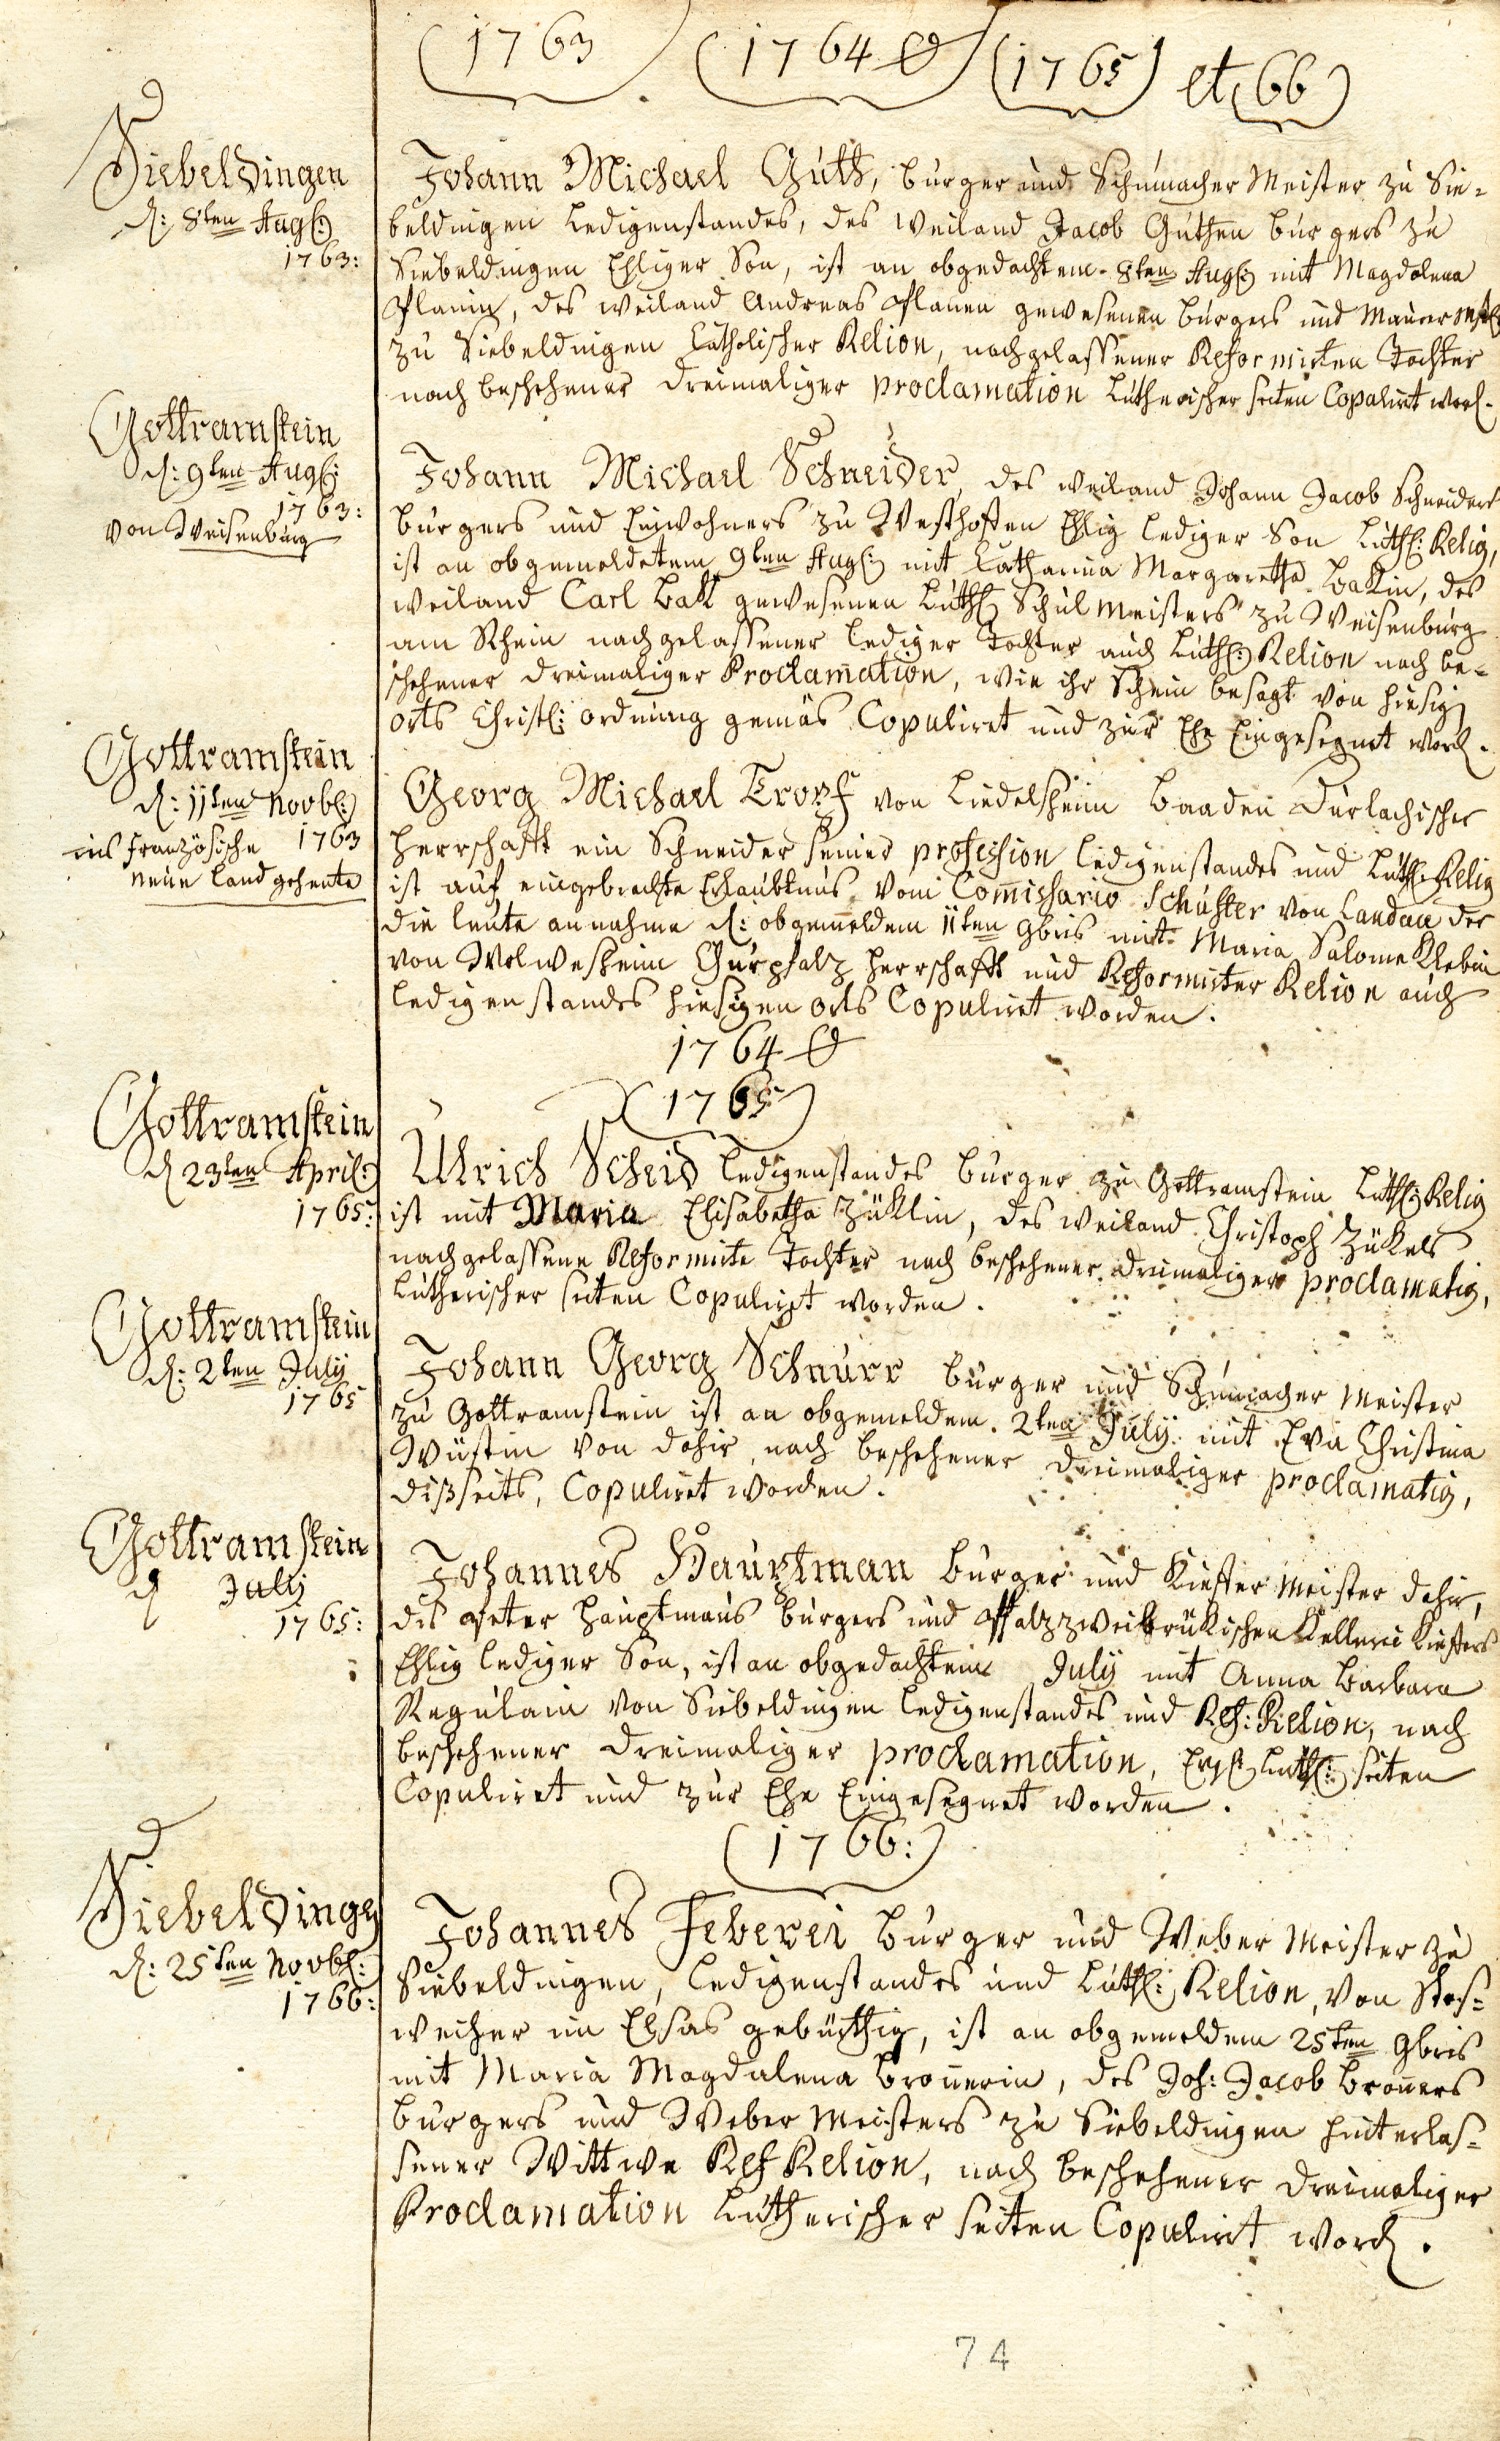 1763 . 1764 1765 et 66
Siebeldingen
d: 8ten Aug:
1763:
Johann Michael Guth, burger und Schumacher Meister zu Sie-
beldingen ledigenstandes, des weiland Jacob Guthen burgers zu
Siebeldingen Ehliger Son, ist an obgedachtem 8ten Aug: mit Magdalena
Planin, des weiland Andreas Planen gewesenen burgers und Maurer Mstr:
zu Siebeldingen Catholischer Relion, nachgelassener Reformirten Tochter
nach beschehener dreimaliger proclamation Lutherischer seiten Copulirt word.
Gottramstein
d: 9ten Aug:
1763:
von Weisenburg
Johann Michael Schneider, des weiland Johann Jacob Schneiders
burgers und Einwohners zu Westhofen Ehlig lediger Son Luth: Relig,
ist an obgemeldetem 9ten Aug: mit Catharina Margaretha Bakin, des
weiland Carl Bak gewesenen Luth: Schul Meisters zu Weisenburg
am Rhein nachgelassener lediger Tochter auch Luth: Relion nach be-
schehener dreimaliger Proclamation, wie ihr Schein besagt von hiesig
orts Christl: ordnung gemäs Copuliret und zur Ehe Eingesegnet word.
Gottramstein
d: 11ten Novb:
1763
ins französische
neue land gehente
Georg Michael Tropf von Liedelsheim Baaden Durlachischer
Herrschafft ein Schneider seiner profession ledigenstandes und Luth: Relig
ist auf eingebrachte Erlaubtnus vom Comissario Schuster von Landau der
die leute annahme d: obgemeldem 11ten 9bris mit Maria Salome Klebin
von Wolwesheim Curpfalz herrschafft und Reformirter Relion auch
ledigenstandes hiesigen orts Copuliret worden.
1764
1765
Gottramstein
d 23ten April:
1765:
Ulrich Scheid ledigenstandes burger zu Gottramstein Luth: Relig
ist mit Maria Elisabetha Züklin, des weiland Christoph Zükels
nachgelassene Reformirte Tochter nach beschehener dreimaliger proclamatig,
Lutherischer seiten Copuliret worden.
Gottramstein
d: 2ten July
1765
Johann Georg Schnurr burger und Schumacher Meister
zu Gottramstein ist an obgemeldem 2ten July mit Eva Christina
Wüstin von dahir, nach beschehener dreimaliger proclamatig,
dißseits, Copuliret worden.
Gottramstein
d July
1765:
Johannes Hauptman burger und Kieffer Meister dahir,
des Peter Hauptmans burgers und Pfalzzweibrükischen Kellerei Kieffers
Ehlig lediger Son, ist an obgedachtem July mit Anna Barbara
Regulain von Siebeldingen ledigenstandes und Ref: Relion, nach
beschehener dreimaliger proclamation, Luth: seiten
Copuliret und zur Ehe Eingesegnet worden.
1766:
Siebeldingen
d: 25ten Novb:
1766:
Johannes Feberei burger und Weber Meister zu
Siebeldingen, ledigenstandes und Luth: Relion, von Stos-
weiher im Elsas gebürthig, ist an obgemeldem 25ten 9bris
mit Maria Magdalena Bronnerin, des Joh: Jacob Bronners
burgers und Weber Meisters zu Siebeldingen hinterlas-
sener Wittwe Ref Relion, nach beschehener dreimaliger
Proclamation Lutherischer seiten Copulirt word.
74